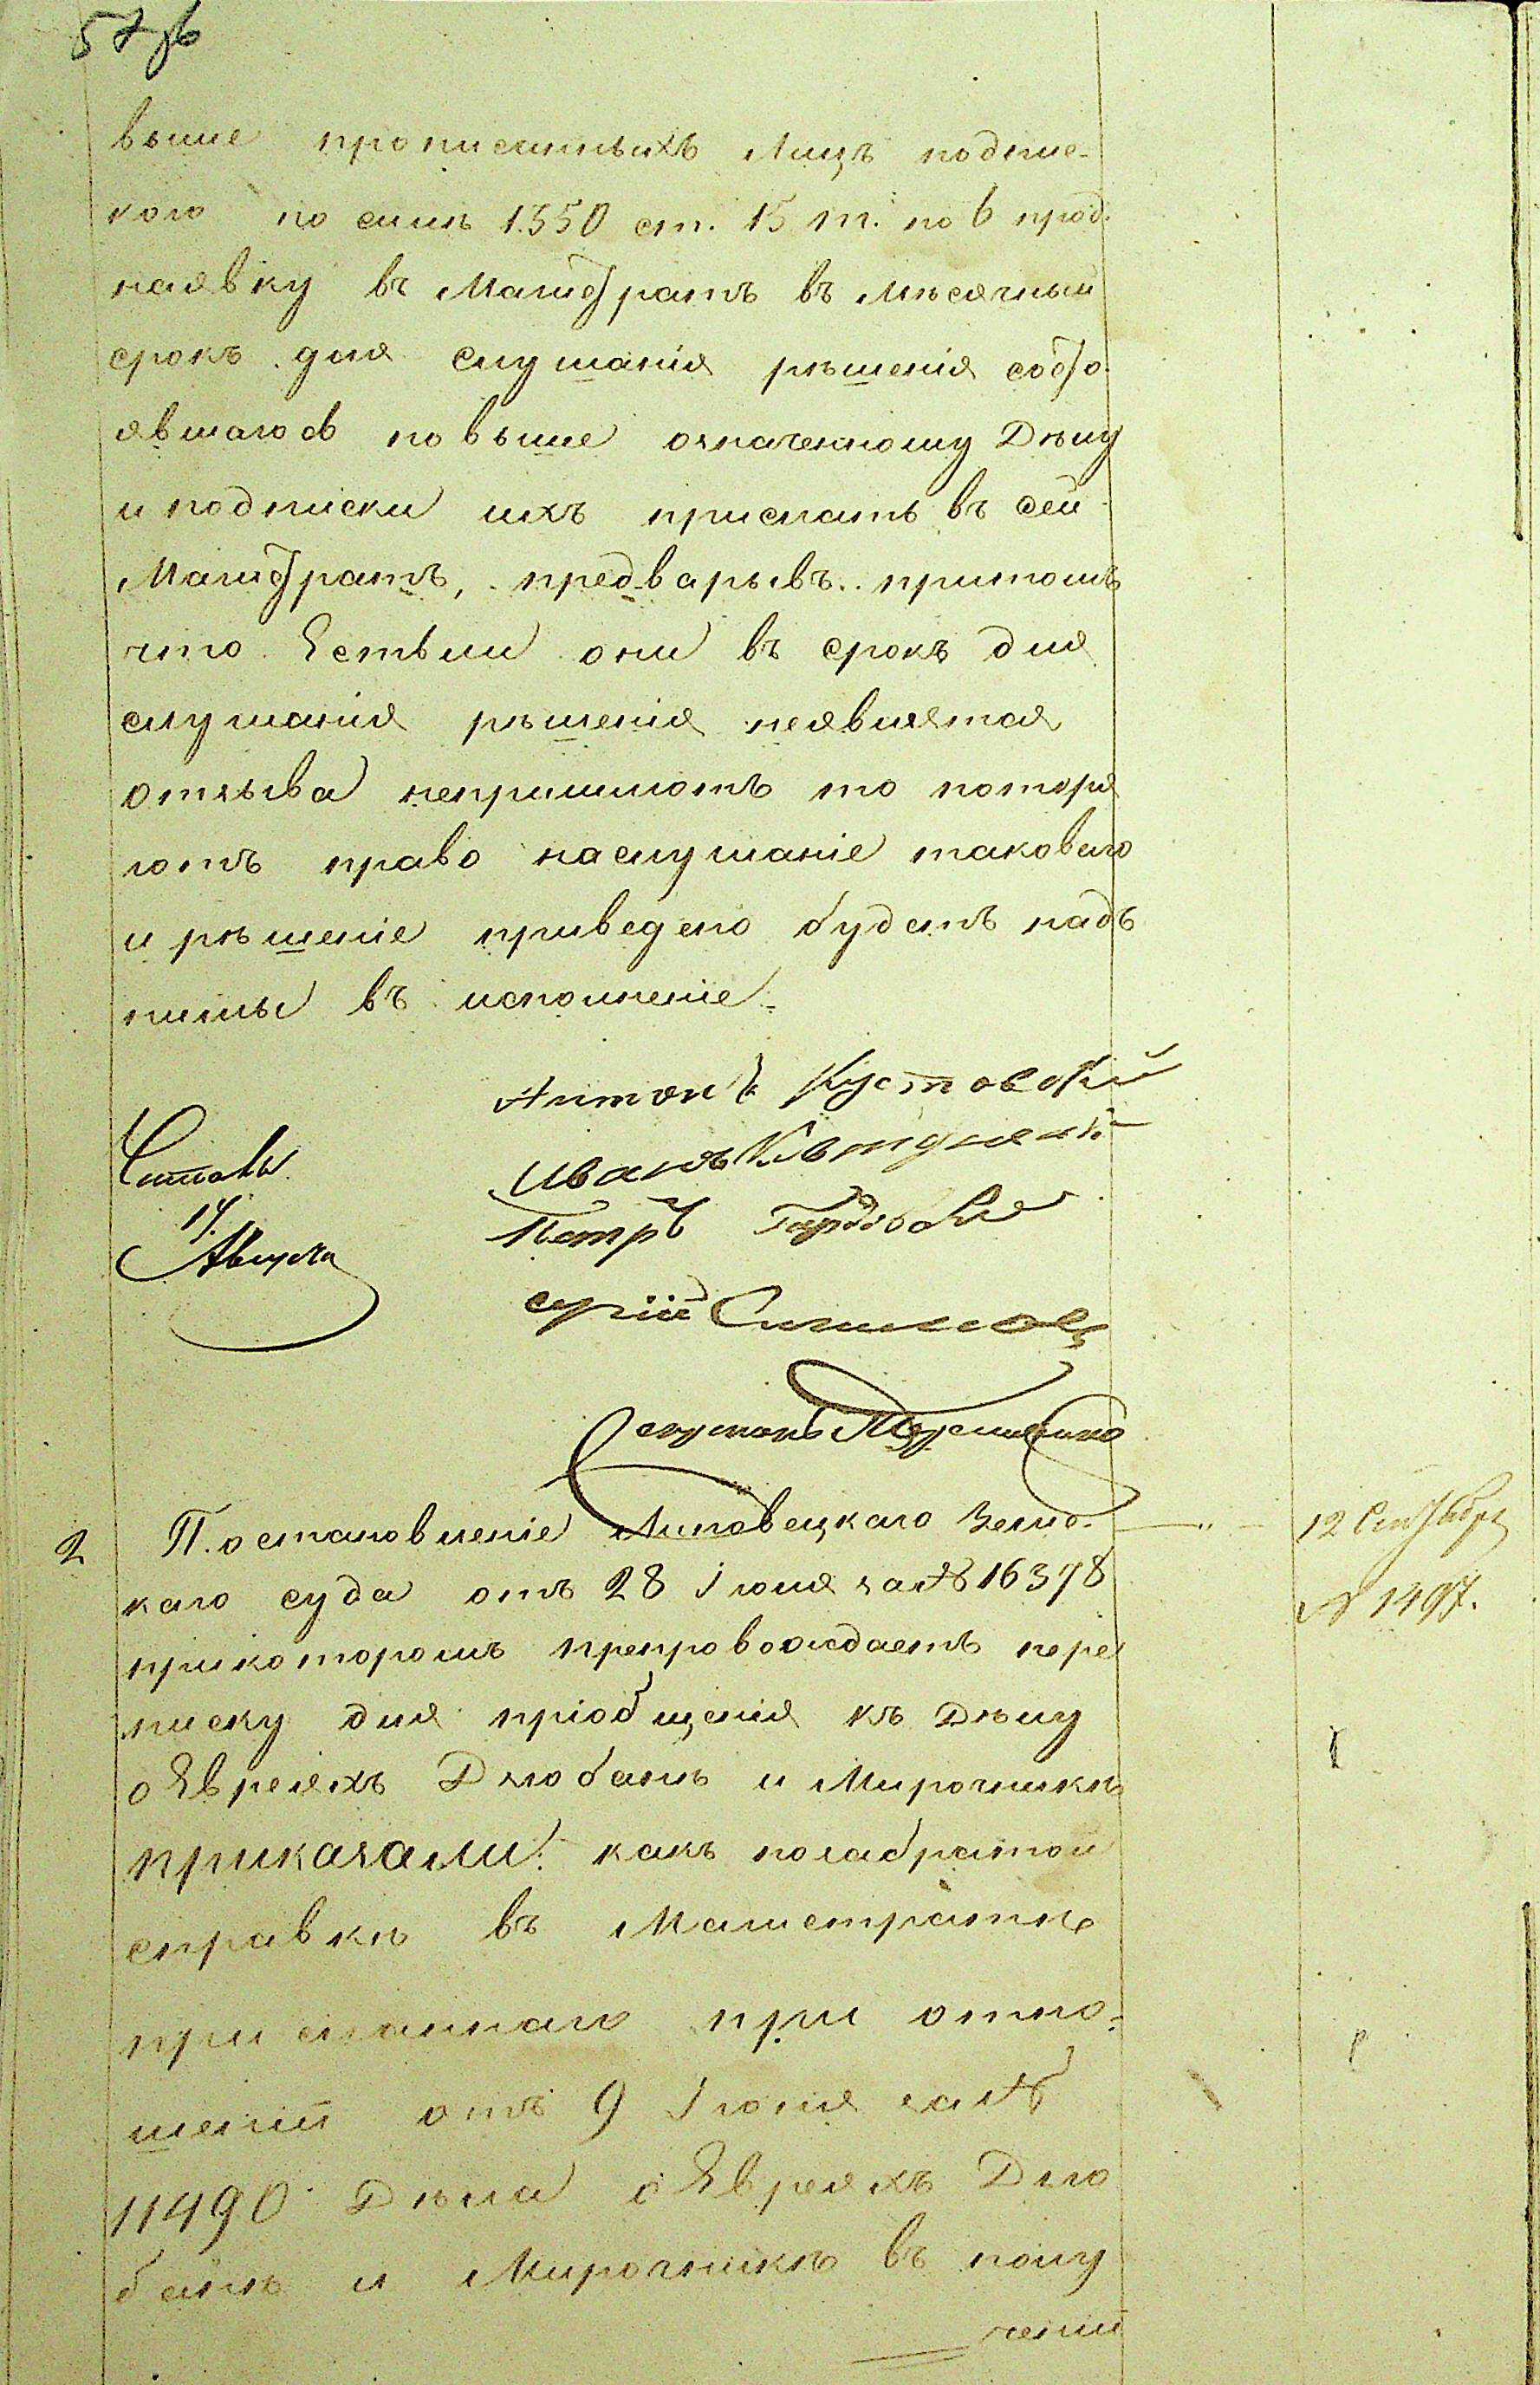 57об
выше прописанныхъ Лицъ подпис-
кого по силѣ 1.550 ст. 15 т. по 6 прод.
наявку въ Магистратъ въ мѣсячный
срокъ для слушанія рѣшенія состо-
явшагося повыше означенному Дѣлу
и подписки ихъ прислать въ сей
Магистратъ, предварывъ притомъ
что Естьли они въ срокъ для
слушанія рѣшенія неявлятся
отзыва непришлютъ то потеря
ютъ право наслушаніе таковаго
и рѣшеніе приведено будетъ надъ
нимы въ исполненіе.
Антонъ Кустовскій
Иванъ
Петръ
Читалъ
14
Августа
Секретарь
2 Постановленіе Липовецкаго Земс-
каго суда отъ 28 Іюля за № 16378
прикоторомъ препровождаетъ пере
писку для пріобщенія къ Дѣлу
о Евреяхъ Дзюбань и Мирочникѣ
приказали: какъ позабратой
справкѣ въ Магистратѣ
присланнаго при отно-
шеніи отъ 9 Іюня за №
11490 Дѣла о Евреяхъ Дзю
банѣ и Мирочникѣ въ полу
ченіи
12 Сентября
№ 1497.